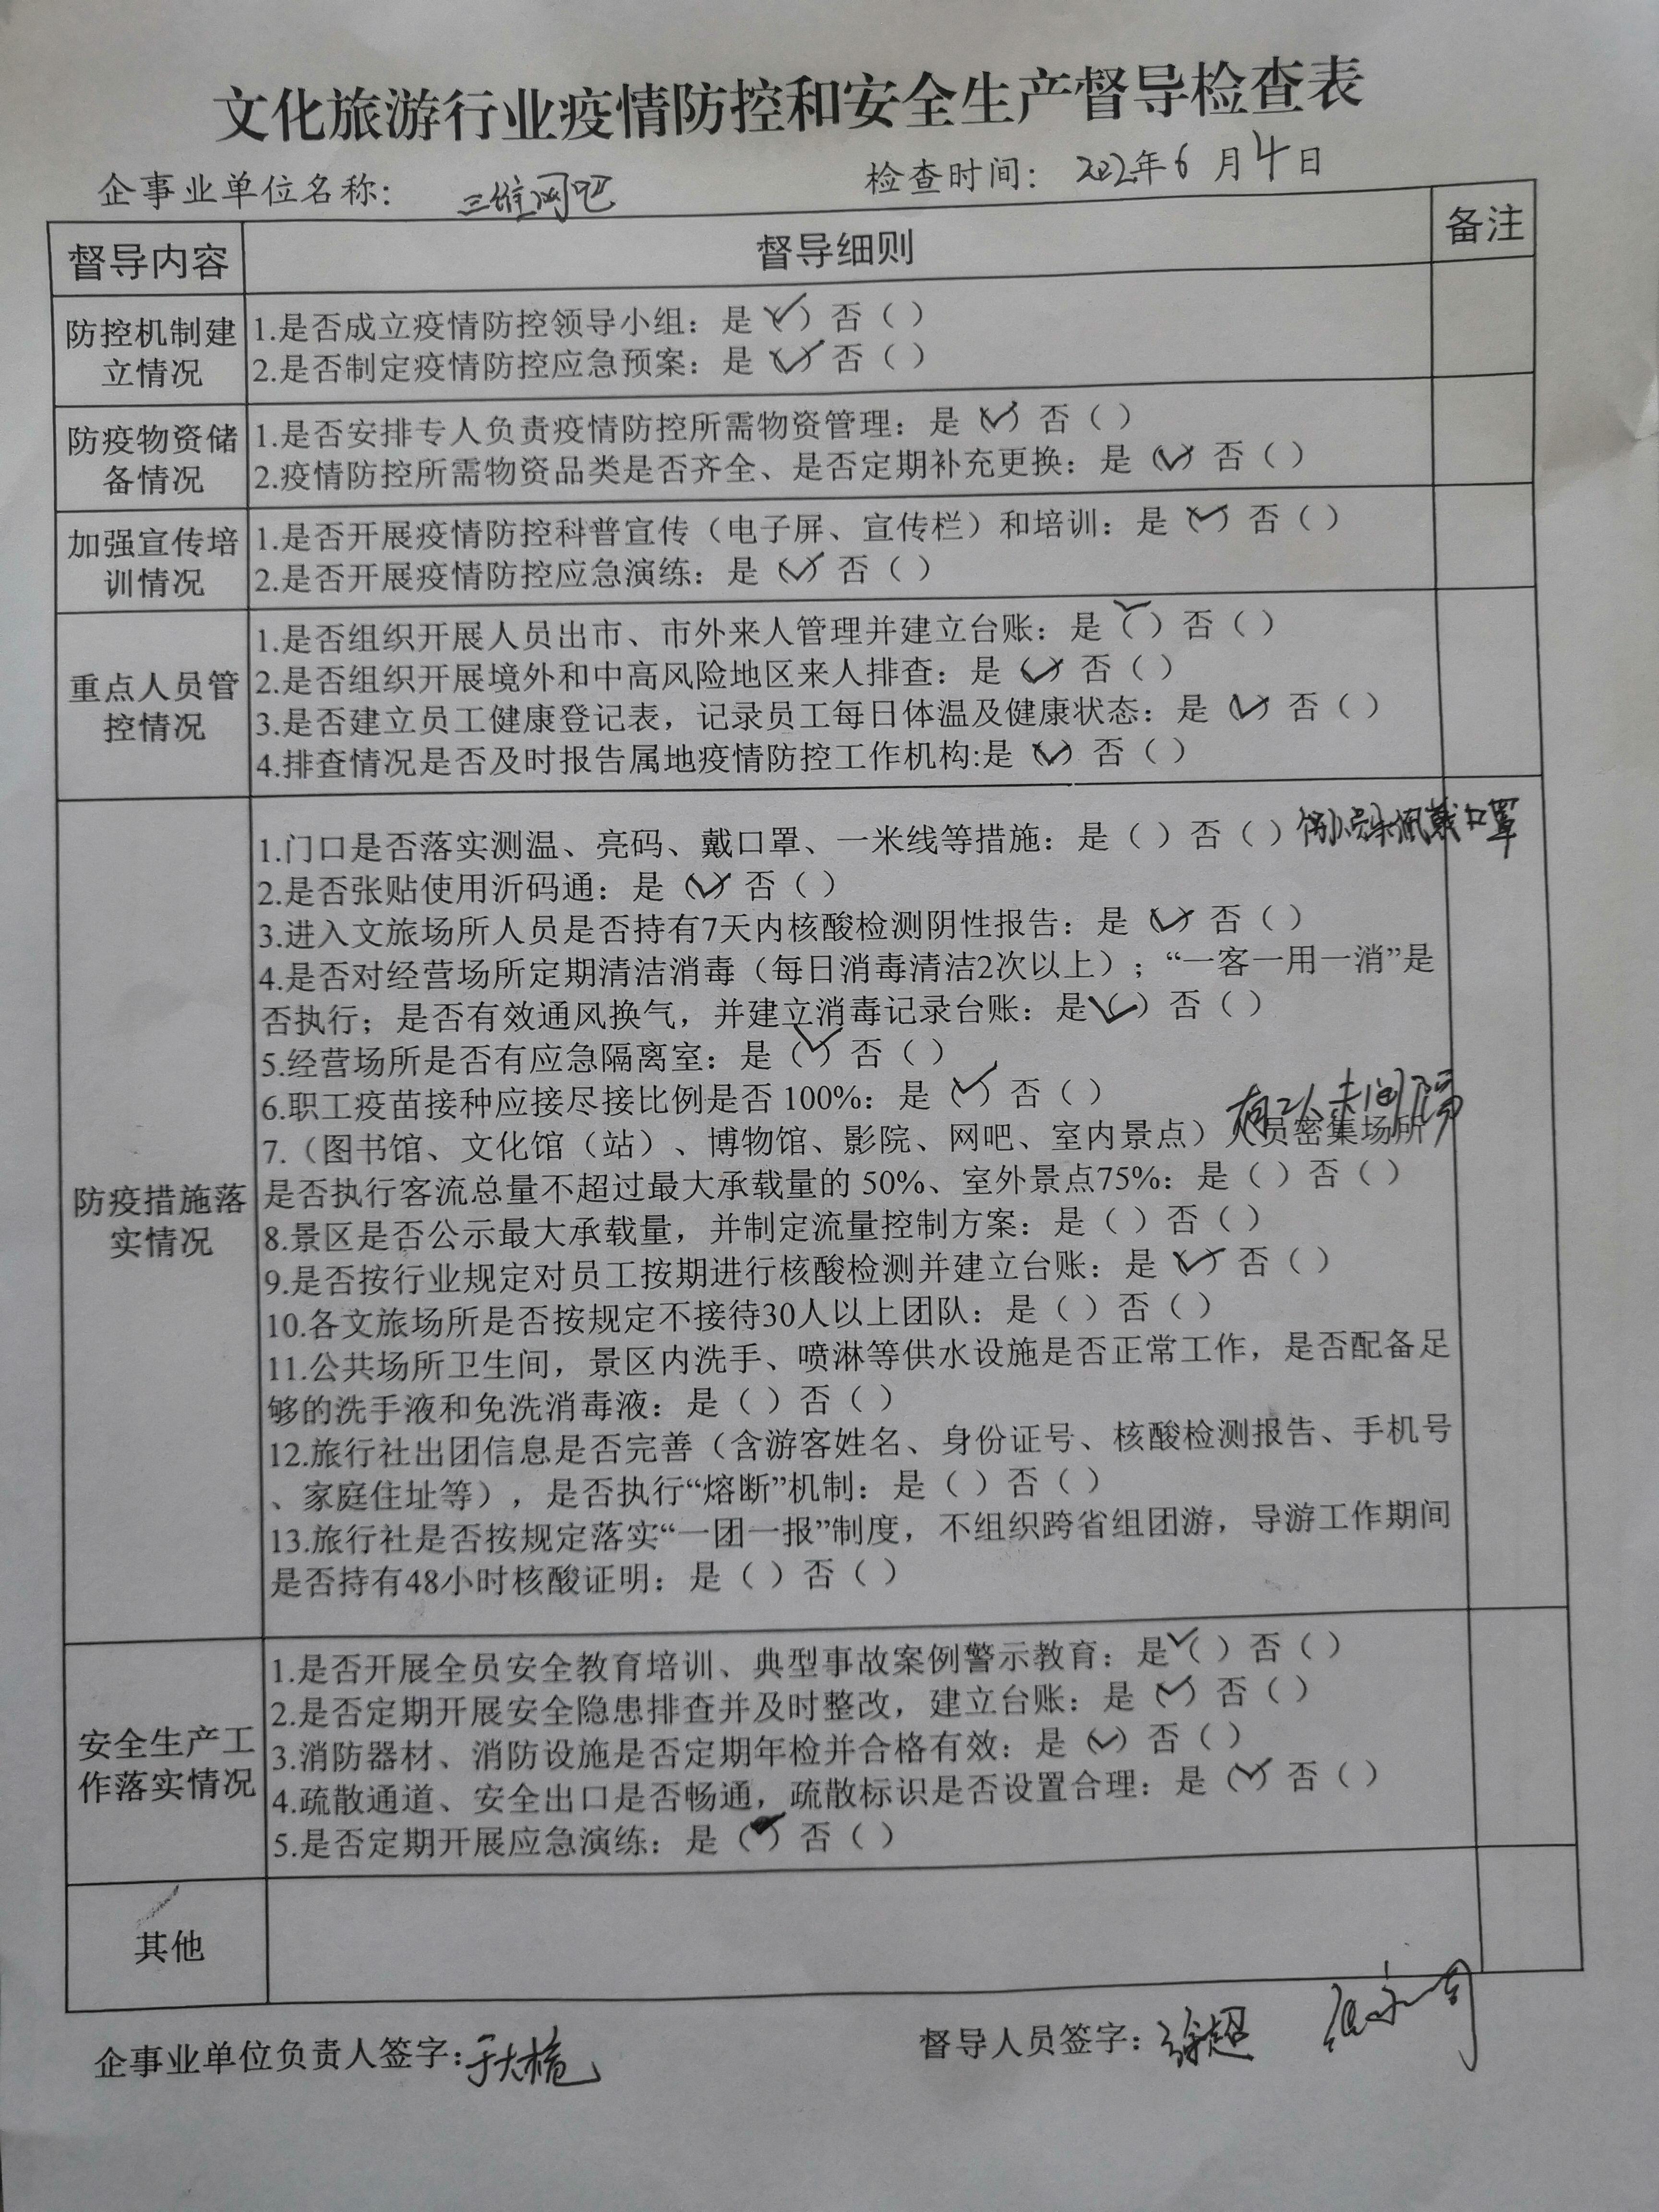 文化旅游行业疫情防控和安全生产督导检查表
企事业单位名称： 三维网吧 检查时间： 2022年6月4日
督导内容 督导细则 备注
防控机制建立情况
1.是否成立疫情防控领导小组：是（✓）否（ ）
2.是否制定疫情防控应急预案：是（✓）否（ ）
防疫物资储备情况
1.是否安排专人负责疫情防控所需物资管理：是（✓）否（ ）
2.疫情防控所需物资品类是否齐全、是否定期补充更换：是（✓）否（ ）
加强宣传培训情况
1.是否开展疫情防控科普宣传（电子屏、宣传栏）和培训：是（✓）否（ ）
2.是否开展疫情防控应急演练：是（✓）否（ ）
重点人员管控情况
1.是否组织开展人员出市、市外来人管理并建立台账：是（✓）否（ ）
2.是否组织开展境外和中高风险地区来人排查：是（✓）否（ ）
3.是否建立员工健康登记表，记录员工每日体温及健康状态：是（✓）否（ ）
4.排查情况是否及时报告属地疫情防控工作机构:是（✓）否（ ）
防疫措施落实情况
1.门口是否落实测温、亮码、戴口罩、一米线等措施：是（ ）否（ ） 未佩戴口罩
2.是否张贴使用沂码通：是（✓）否（ ）
3.进入文旅场所人员是否持有7天内核酸检测阴性报告：是（✓）否（ ）
4.是否对经营场所定期清洁消毒（每日消毒清洁2次以上）；“一客一用一消”是
否执行；是否有效通风换气，并建立消毒记录台账：是（✓）否（ ）
5.经营场所是否有应急隔离室：是（✓）否（ ）
6.职工疫苗接种应接尽接比例是否 100%：是（✓）否（ ）
有 人未间隔
7.（图书馆、文化馆（站）、博物馆、影院、网吧、室内景点）人员密集场所
是否执行客流总量不超过最大承载量的 50%、室外景点75%：是（ ）否（ ）
8.景区是否公示最大承载量，并制定流量控制方案：是（ ）否（ ）
9.是否按行业规定对员工按期进行核酸检测并建立台账：是（✓）否（ ）
10.各文旅场所是否按规定不接待30人以上团队：是（ ）否（ ）
11.公共场所卫生间，景区内洗手、喷淋等供水设施是否正常工作，是否配备足
够的洗手液和免洗消毒液：是（ ）否（ ）
12.旅行社出团信息是否完善（含游客姓名、身份证号、核酸检测报告、手机号
、家庭住址等），是否执行“熔断”机制：是（ ）否（ ）
13.旅行社是否按规定落实“一团一报”制度，不组织跨省组团游，导游工作期间
是否持有48小时核酸证明：是（ ）否（ ）
安全生产工作落实情况
1.是否开展全员安全教育培训、典型事故案例警示教育：是（✓）否（ ）
2.是否定期开展安全隐患排查并及时整改，建立台账：是（✓）否（ ）
3.消防器材、消防设施是否定期年检并合格有效：是（✓）否（ ）
4.疏散通道、安全出口是否畅通，疏散标识是否设置合理：是（✓）否（ ）
5.是否定期开展应急演练：是（✓）否（ ）
其他
企事业单位负责人签字： 督导人员签字：徐超